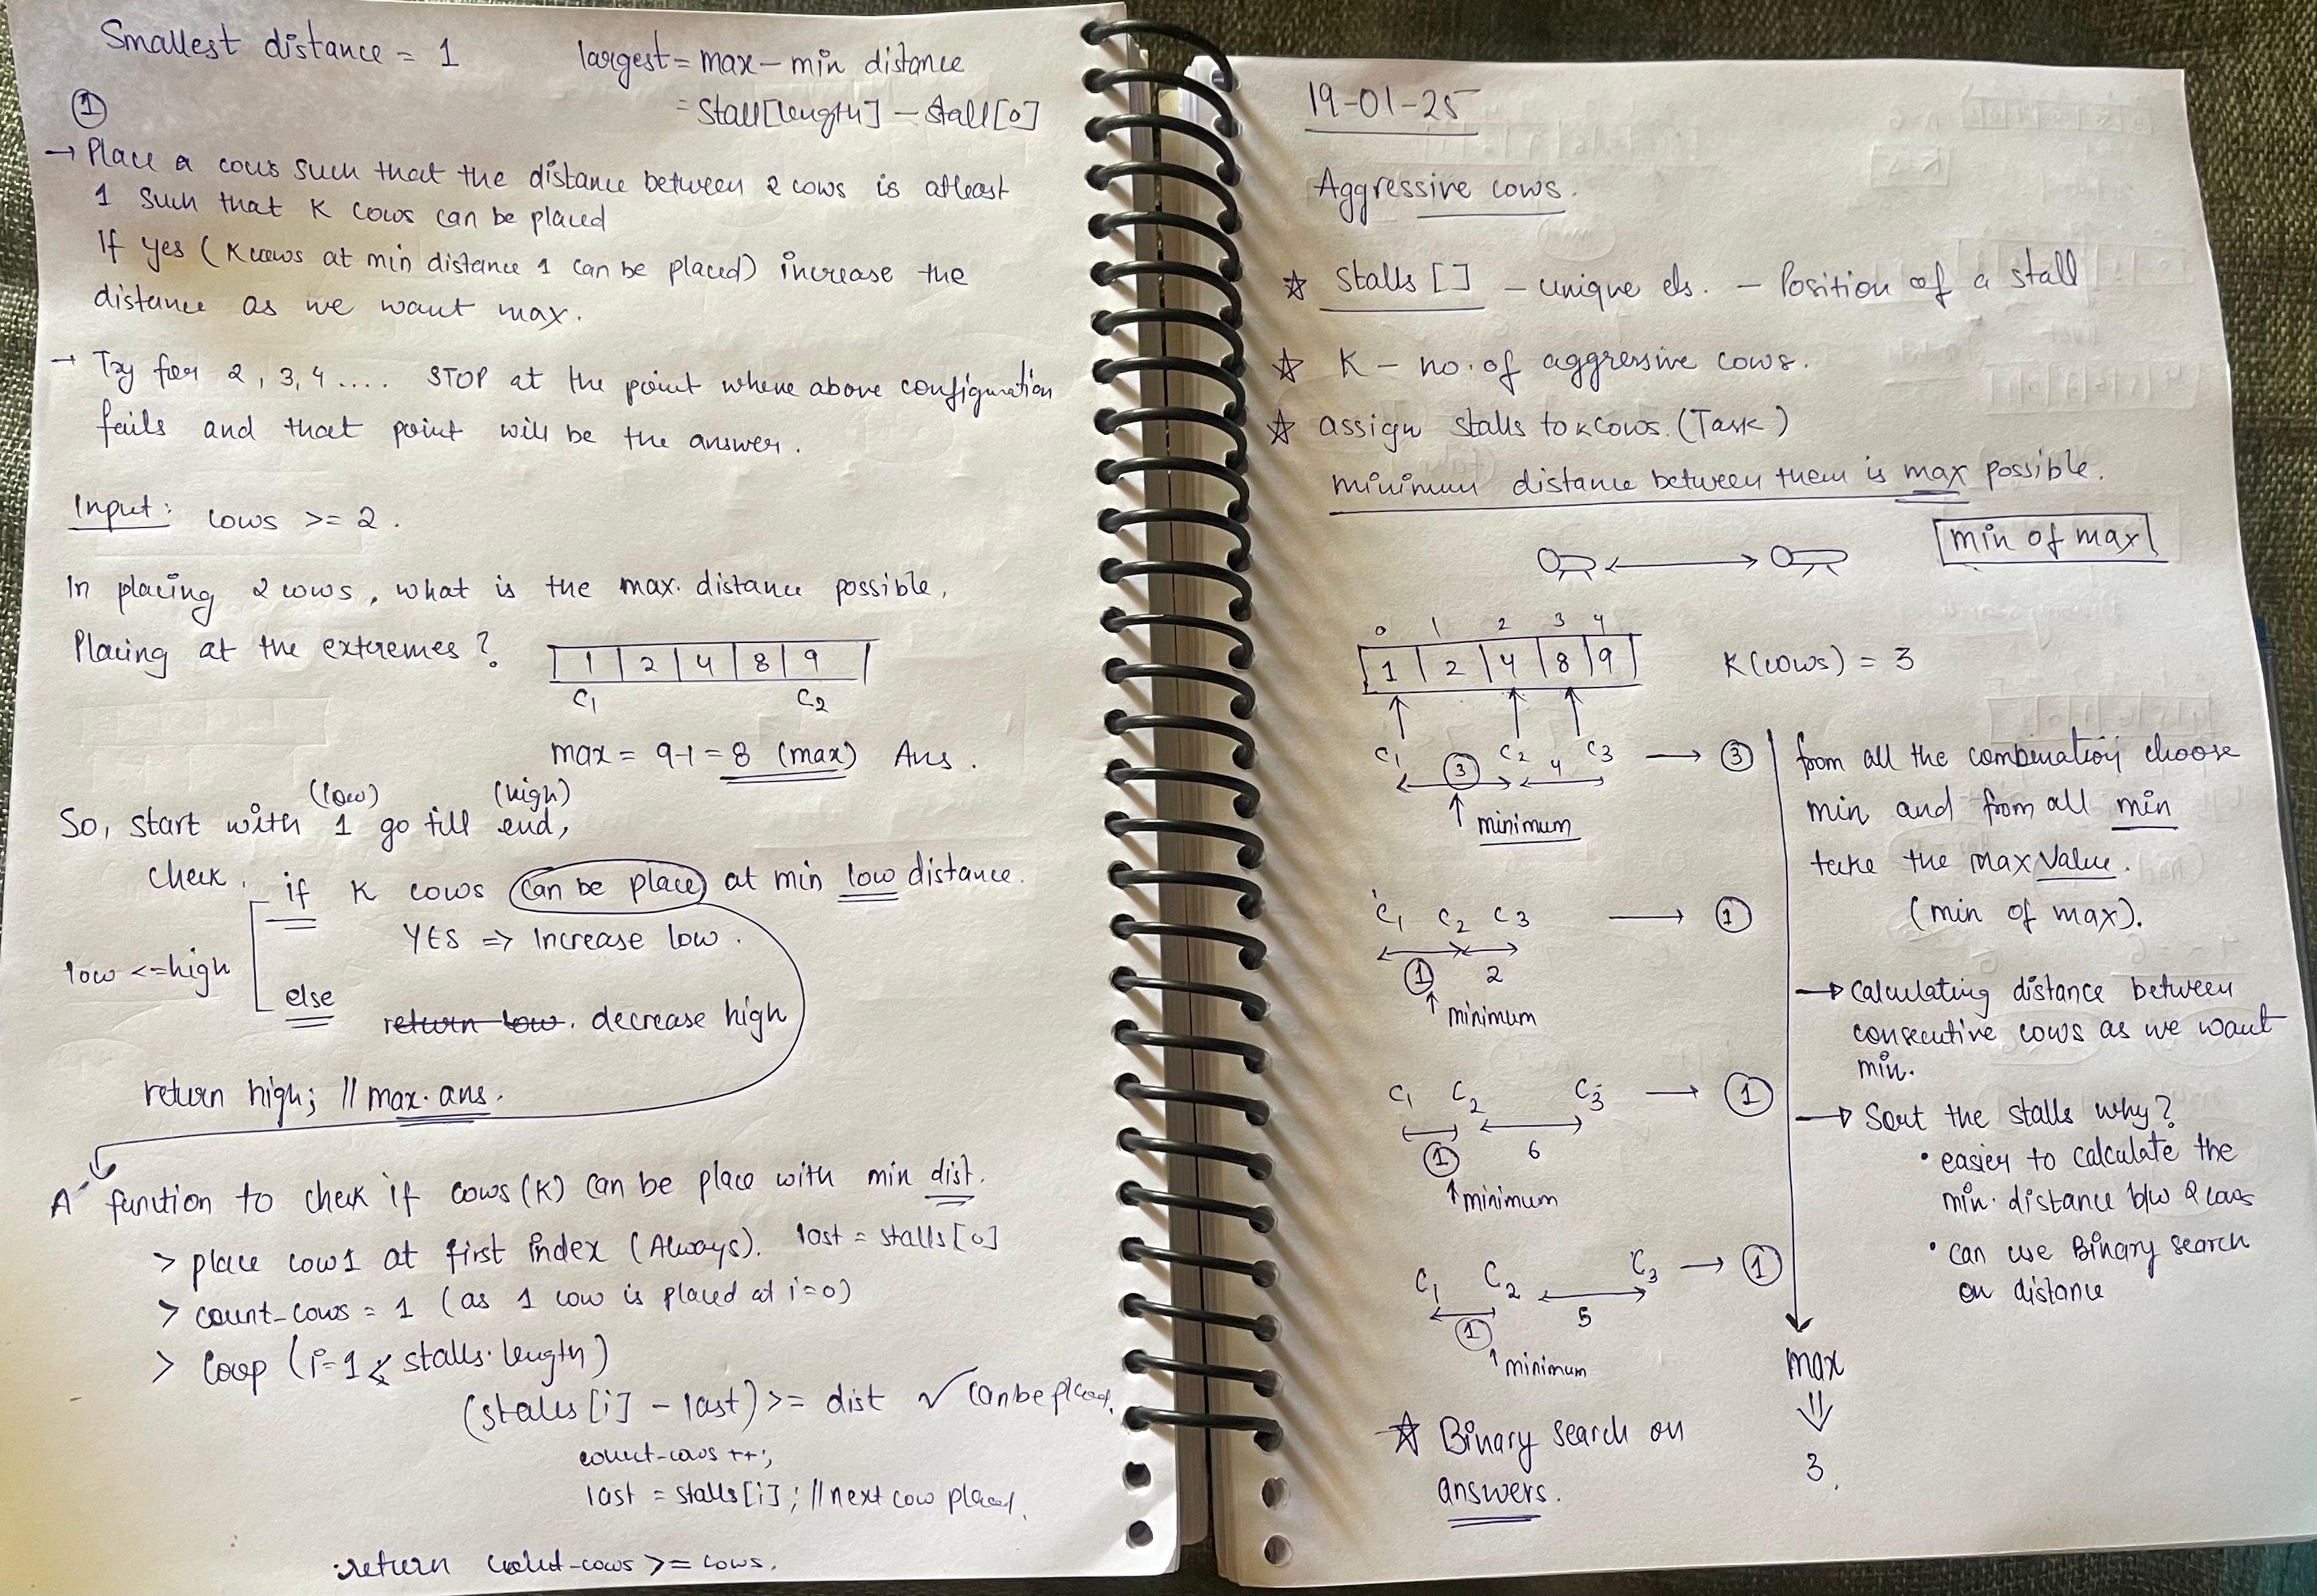 Smallest distance = 1
largest = max – min distance
= Stall[length] – Stall[0]
①
→ Place a cows such that the distance between 2 cows is atleast
1 such that K cows can be placed
If yes (K cows at min distance 1 can be placed) increase the
distance as we want max.
→ Try for 2, 3, 4 .... STOP at the point where above configuration
fails and that point will be the answer.
Input: cows >= 2.
In placing 2 cows, what is the max. distance possible,
Placing at the extremes?
1 2 4 8 9
C1 C2
max = 9-1 = 8 (max) Ans.
(low) (high)
So, start with 1 go till end,
check, if K cows can be place at min low distance.
YES => Increase low.
low <= high
else
return low. decrease high
return high; // max. ans.
A function to check if cows (K) can be place with min dist.
> place cow1 at first index (Always). last = stalls[0]
> count_cows = 1 (as 1 cow is placed at i=0)
> loop (i=1 < stalls.length)
(stalls[i] - last) >= dist ✓ can be placed.
count-cows ++;
last = stalls[i]; // next cow placed.
return count-cows >= cows.
19-01-25
Aggressive cows.
☆ Stalls [] – unique els. – Position of a stall
☆ K – no. of aggressive cows.
☆ assign stalls to K cows. (Task)
minimum distance between them is max possible.
min of max
0 1 2 3 4
1 2 4 8 9
K(cows) = 3
C1 ③ C2 4 C3 → ③
↑ minimum
from all the combination choose
min and from all min
take the max value.
(min of max).
C1 C2 C3 → ①
① 2
↑ minimum
→ Calculating distance between
consecutive cows as we want
min.
C1 C2 C3 → ①
① 6
↑ minimum
→ Sort the stalls why?
• easier to calculate the
min. distance b/w 2 cows
• can use Binary search
on distance
C1 C2 C3 → ①
① 5
↑ minimum
max
⇓
3.
☆ Binary search on
answers.